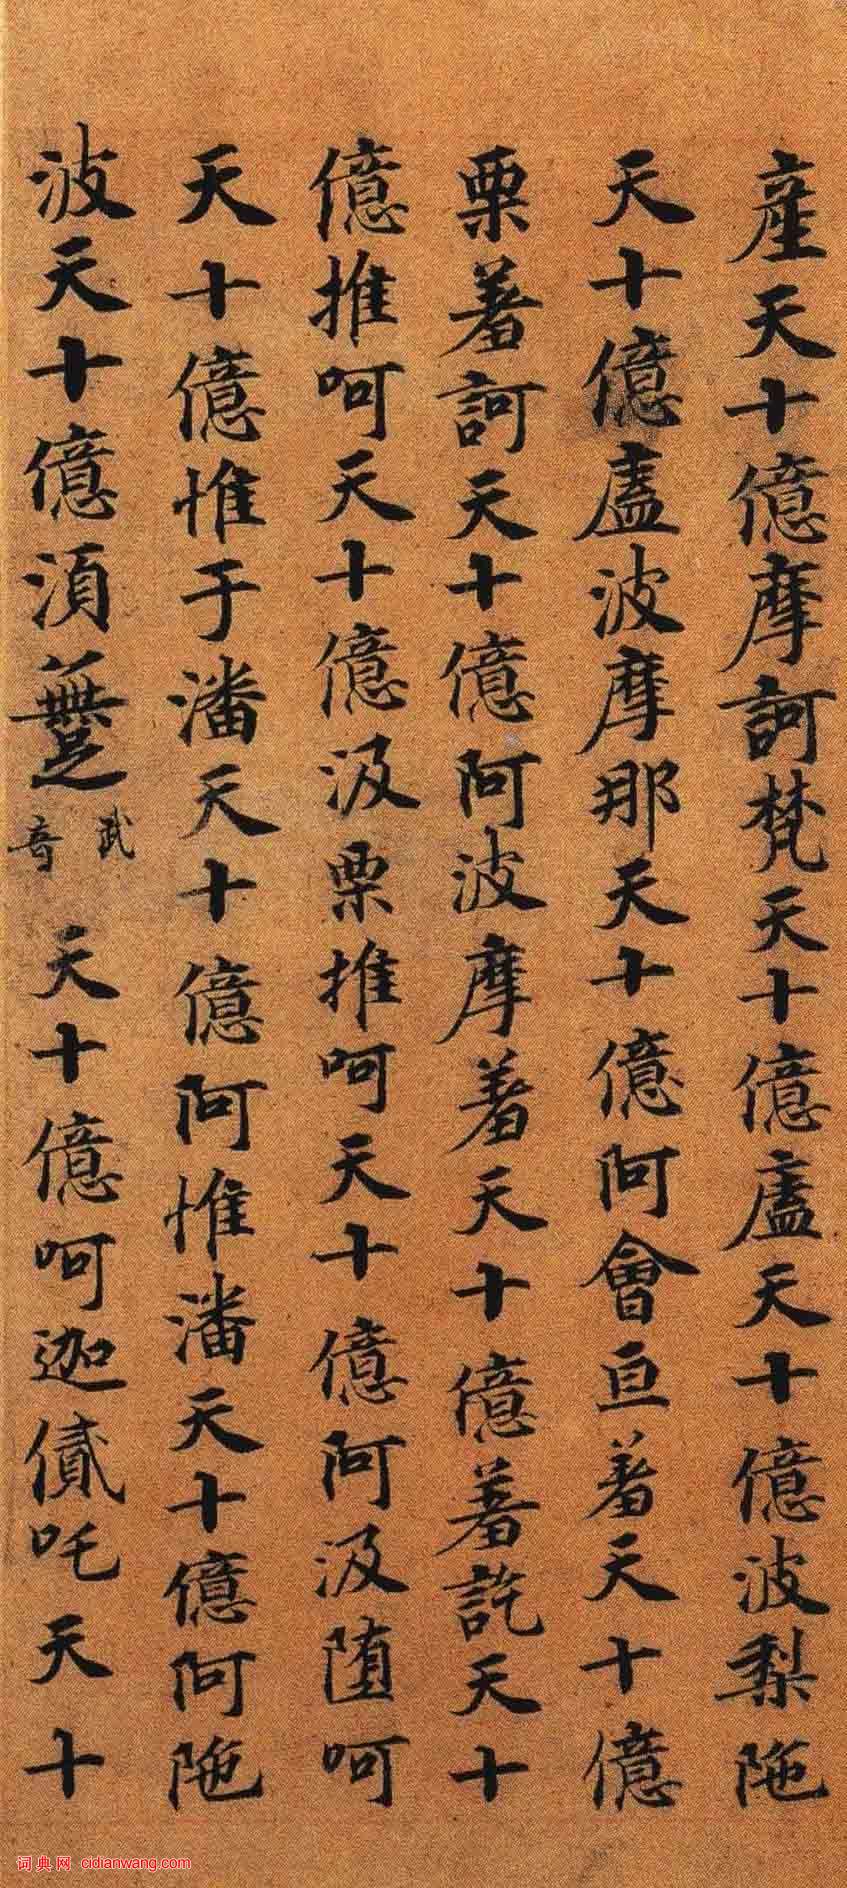 産天十億摩訶梵天十億廬天十億波梨陁
天十億廬波摩那天十億阿會亘著天十億
栗著訶天十億阿波摩著天十億著訖天十
億推呵天十億汲栗推呵天十億阿汲墮呵
天十億惟于潘天十億阿惟潘天十億阿陁
波天十億須 武音 天十億呵迦貳吒天十
词典网 cidianwang.com